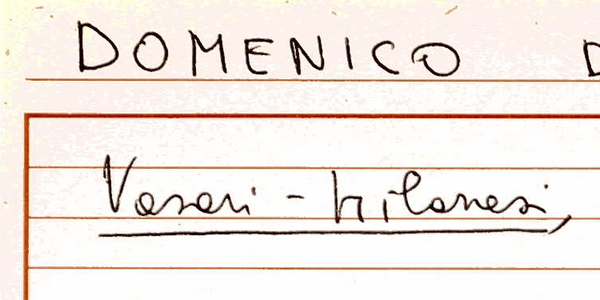 DOMENICO D
Vasari - Milanesi,